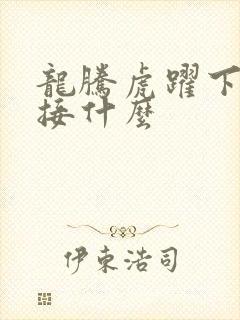 龍騰虎躍下
接什麼
伊東浩司